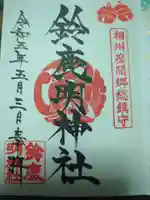 相州座間郷総鎮守
鈴鹿明神社
令和五年五月三日奉拝
鈴鹿明神社